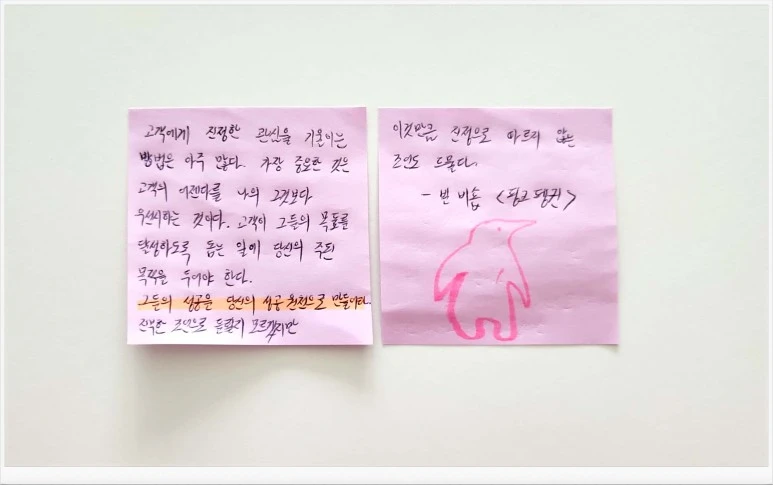 고객에게 진정한 관심을 기울이는
방법은 아주 많다. 가장 중요한 것은
고객의 어젠다를 나의 그것보다
우선시하는 것이다. 고객이 그들의 목표를
달성하도록 돕는 일에 당신의 주된
목적을 두어야 한다.
그들의 성공을 당신의 성공 원천으로 만들어라.
진부한 조언으로 들릴지 모르겠지만
이것만큼 진정으로 따르지 않는
조언도 드물다.
- 빌 비숍 <핑크펭귄>